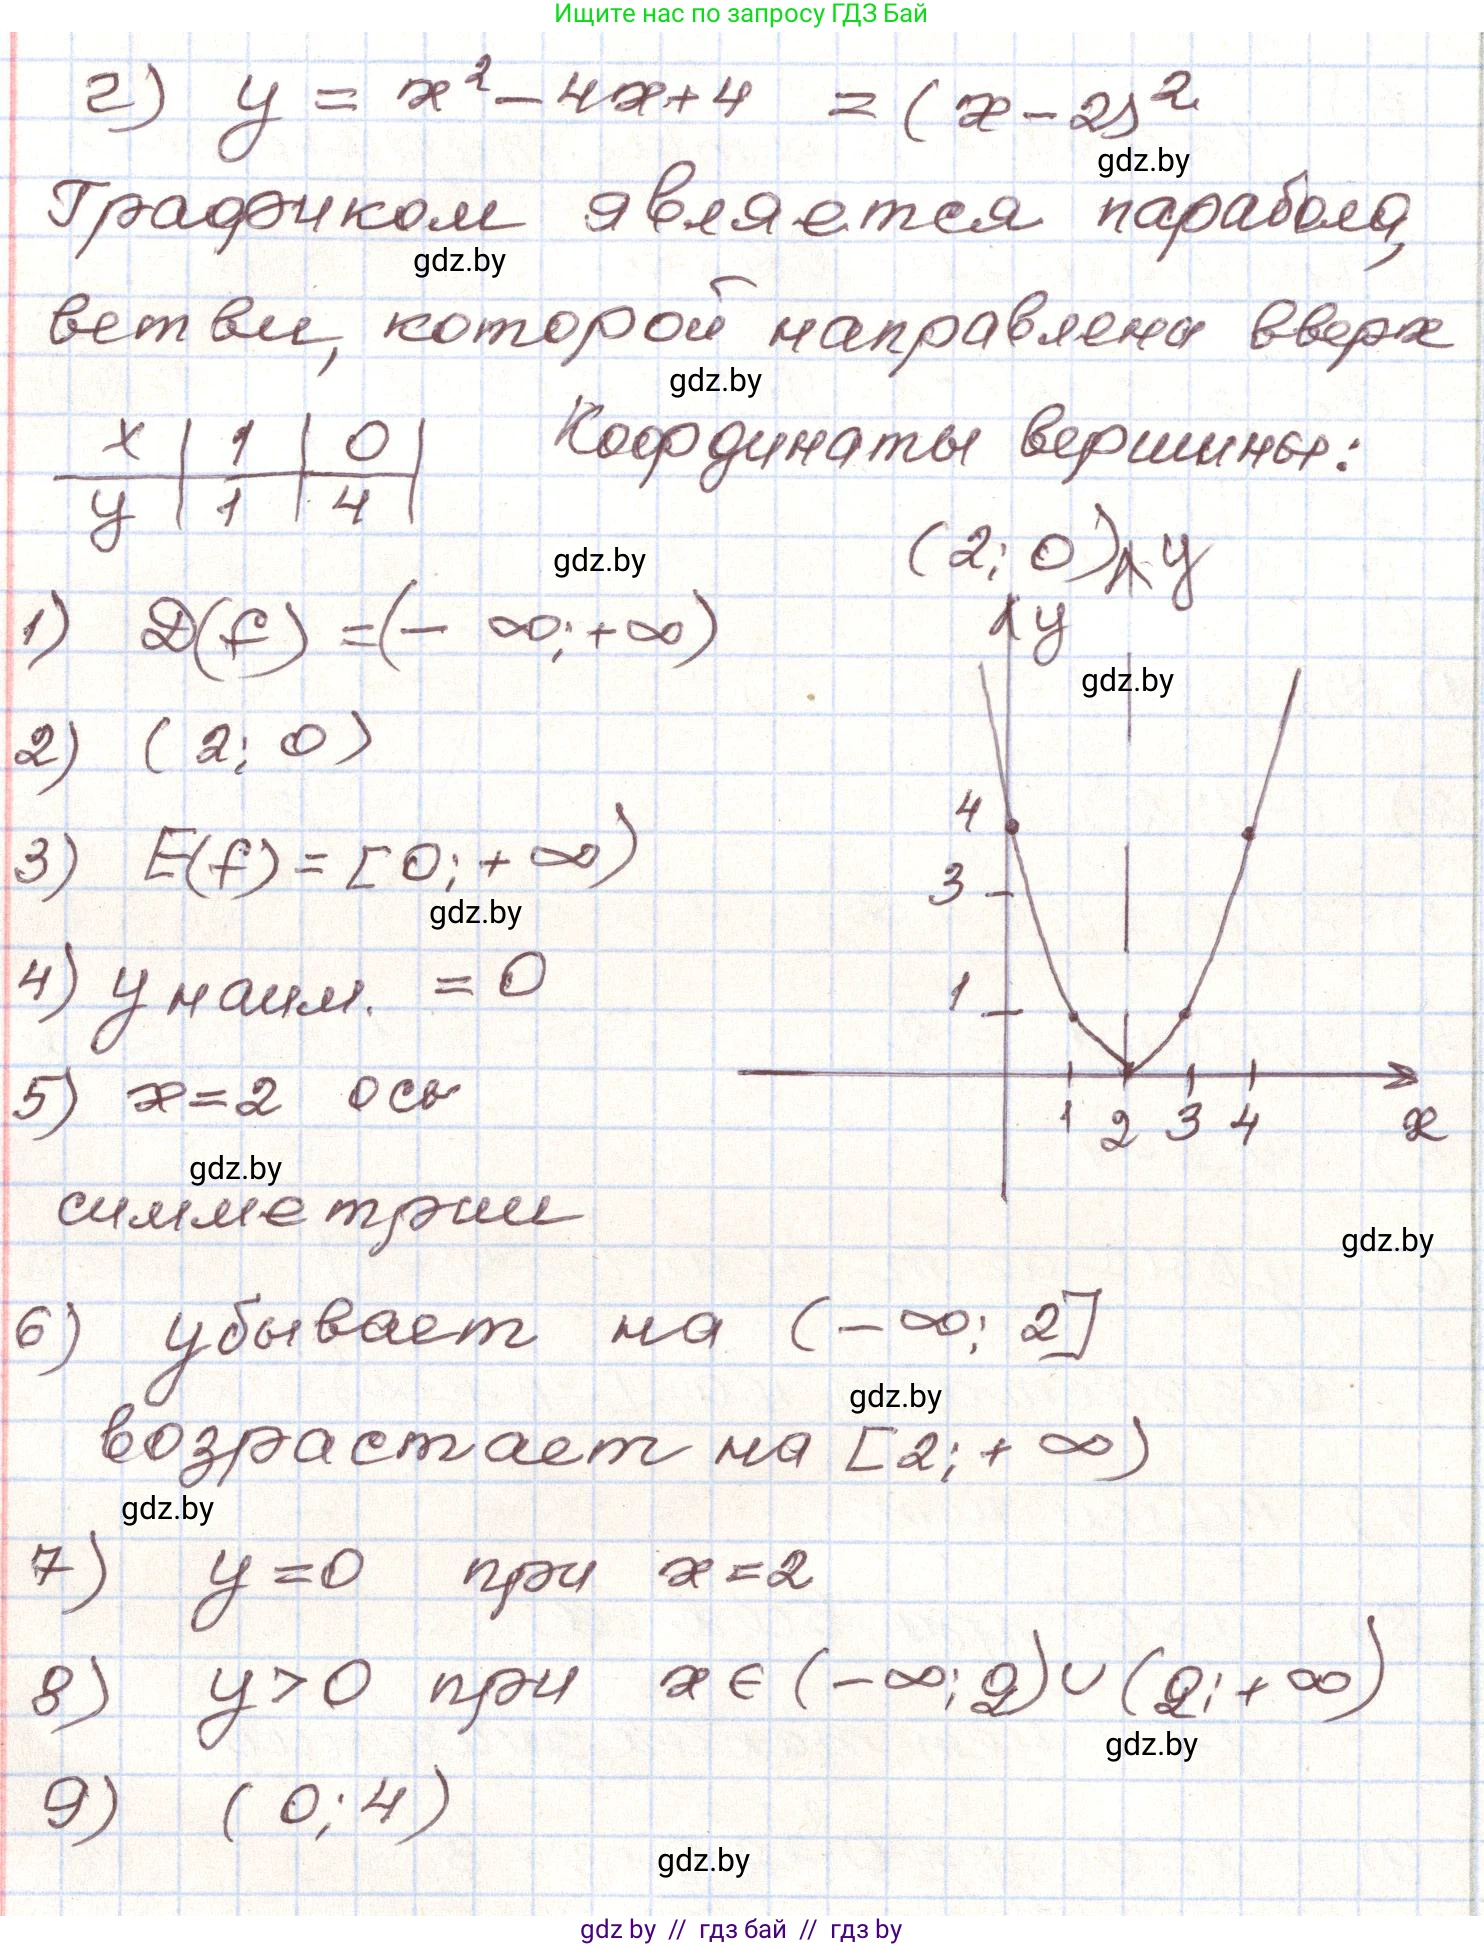 Ищите нас по запросу ГДЗ Бай
г) y = x² - 4x + 4 = (x - 2)²
gdz.by
Графиком является парабола,
gdz.by
ветви, которой направлены вверх
gdz.by
x | 1 | 0 |
y | 1 | 4 |
Координаты вершины:
(2; 0)
gdz.by
y
y
gdz.by
4
3
1
1 2 3 4 x
gdz.by
1) D(f) = (- ∞; + ∞)
2) (2; 0)
3) E(f) = [0; + ∞)
gdz.by
4) y наим. = 0
5) x = 2 ось
gdz.by
симметрии
6) убывает на (- ∞; 2]
gdz.by
возрастает на [2; + ∞)
gdz.by
7) y = 0 при x = 2
8) y > 0 при x ∈ (- ∞; 2) ∪ (2; + ∞)
gdz.by
9) (0; 4)
gdz.by
gdz by // гдз бай // гдз by